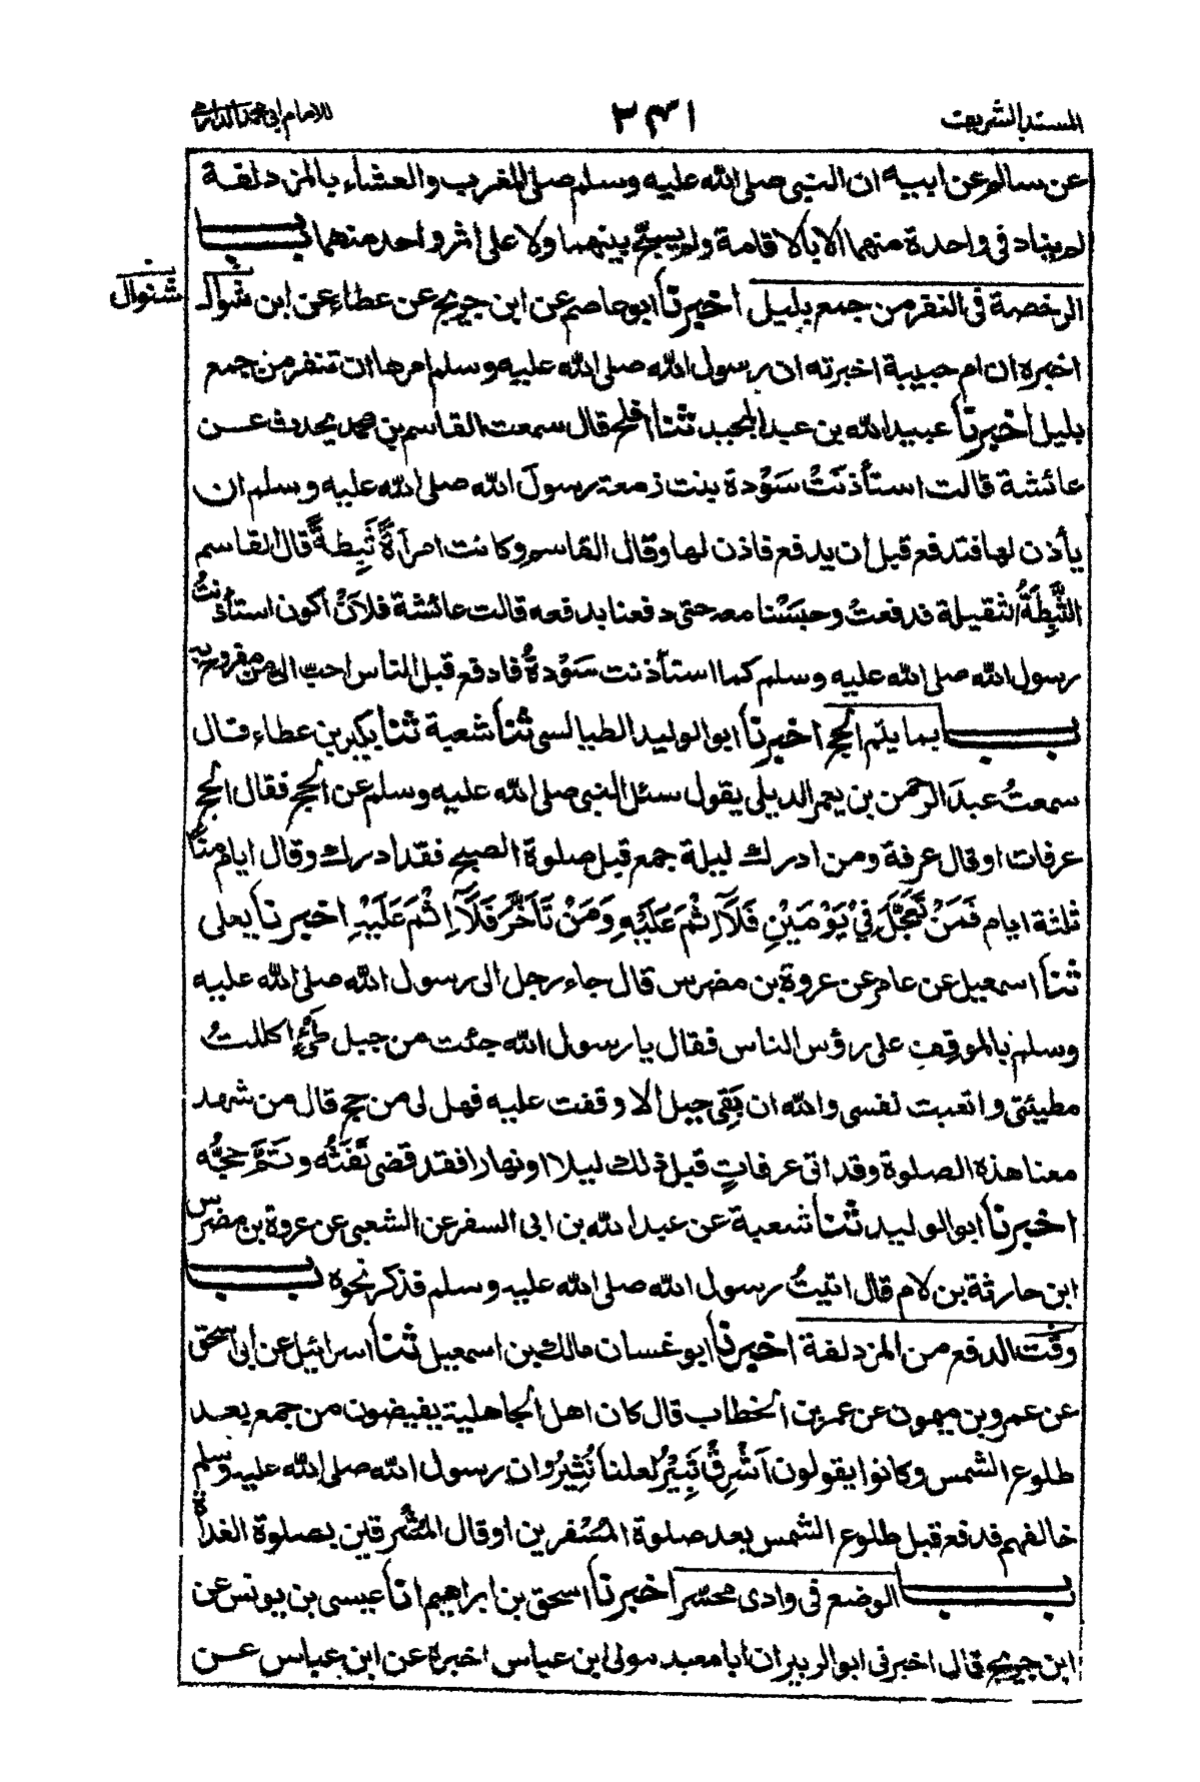 المسند الشريف ٢٤١ للامام ابي محمد الدارمي
عن سالم عن ابيه ان النبي صلى الله عليه وسلم صلى المغرب والعشاء بالمزدلفة
لم يناد في واحدة منهما الا بالاقامة ولم يسبح بينهما ولا على اثر واحد منهما باب
الرخصة في النفر من جمع بليل اخبرنا ابو عاصم عن ابن جريج عن عطاء عن ابن شوال
شنوال
اخبره ان ام حبيبة اخبرته ان رسول الله صلى الله عليه وسلم امرها ان تنفر من جمع
بليل اخبرنا عبيد الله بن عبد المجيد ثنا افلح قال سمعت القاسم بن محمد يحدث عن
عائشة قالت استأذنَتْ سَوْدة بنت زمعة رسولَ الله صلى الله عليه وسلم ان
يأذن لها فتدفع قبل ان يدفع فاذن لها وقال القاسم وكانت امرأةً ثَبِطةً قال القاسم
الثَّبِطَةُ الثقيلة فدفعتْ وحبَسَنا معه حتى دفعنا بدفعه قالت عائشة فلاَنْ أكون استأذنتُ
رسول الله صلى الله عليه وسلم كما استأذنت سَوْدةُ فادفع قبل الناس احبّ الي من مفروح به
باب بما يتم الحج اخبرنا ابو الوليد الطيالسي ثنا شعبة ثنا بكير بن عطاء قال
سمعتُ عبدَ الرحمن بن يعمر الديلي يقول سئل النبي صلى الله عليه وسلم عن الحج فقال الحج
عرفات او قال عرفة ومن ادرك ليلة جمع قبل صلوة الصبح فقد ادرك وقال ايام منًى
ثلثة ايام فَمَنْ تَعَجَّلَ فِيْ يَوْمَيْنِ فَلَآ اِثْمَ عَلَيْهِ وَمَنْ تَاَخَّرَ فَلَآ اِثْمَ عَلَيْهِ اخبرنا يعلى
ثنا اسمعيل عن عامر عن عروة بن مضرس قال جاء رجل الى رسول الله صلى الله عليه
وسلم بالموقِفِ على رؤس الناس فقال يا رسول الله جئت من جبل طَيِّئٍ اكللتُ
مطيئتي واتعبت نفسي والله ان بَقِيَ جبل الا وقفت عليه فهل لي من حج قال من شهد
معنا هذه الصلوة وقد اتى عرفاتٍ قبل ذلك ليلا او نهارا فقد قضى تَفَثَه وتَمَّ حجُّه
اخبرنا ابو الوليد ثنا شعبة عن عبد الله بن ابي السفر عن الشعبي عن عروة بن مضرس
ابن حارثة بن لام قال اتيتُ رسول الله صلى الله عليه وسلم فذكر نحوه باب
وقت الدفع من المزدلفة اخبرنا ابو غسان مالك بن اسمعيل ثنا اسرائيل عن ابي اسحق
عن عمرو بن ميمون عن عمر بن الخطاب قال كان اهل الجاهلية يفيضون من جمع بعد
طلوع الشمس وكانوا يقولون اَشْرِقْ ثَبِيْرُ لعلنا نُثِيْرُ وان رسول الله صلى الله عليه وسلم
خالفهم فدفع قبل طلوع الشمس بعد صلوة المُسْفرين او قال المُشْرقين بصلوة الغداة
باب الوضع في وادى محسّر اخبرنا اسحق بن ابراهيم انا عيسى بن يونس عن
ابن جريج قال اخبرني ابو الزبير ان ابا معبد مولى ابن عباس اخبره عن ابن عباس عن